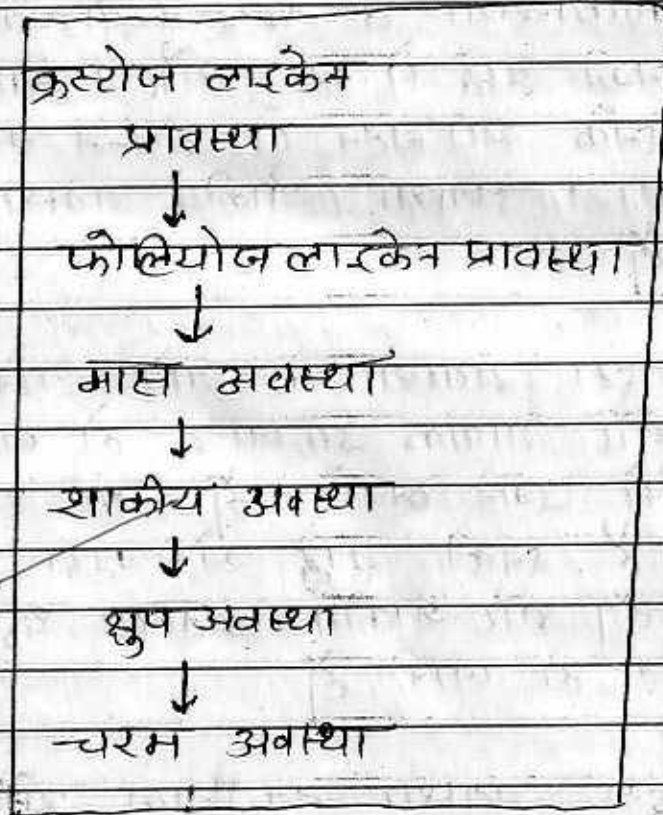 क्रस्टोज लाइकेन
प्रावस्था
↓
फोलियोज लाइकेन प्रावस्था
↓
मास अवस्था
↓
शाकीय अवस्था
↓
क्षुप अवस्था
↓
चरम अवस्था